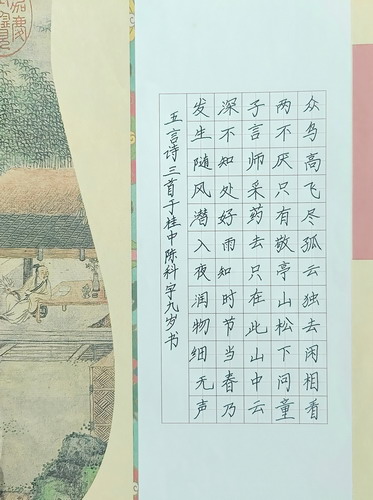 众鸟高飞尽孤云独去闲相看
两不厌只有敬亭山松下问童
子言师采药去只在此山中云
深不知处好雨知时节当春乃
发生随风潜入夜润物细无声
五言诗三首于桂中陈科宇九岁书